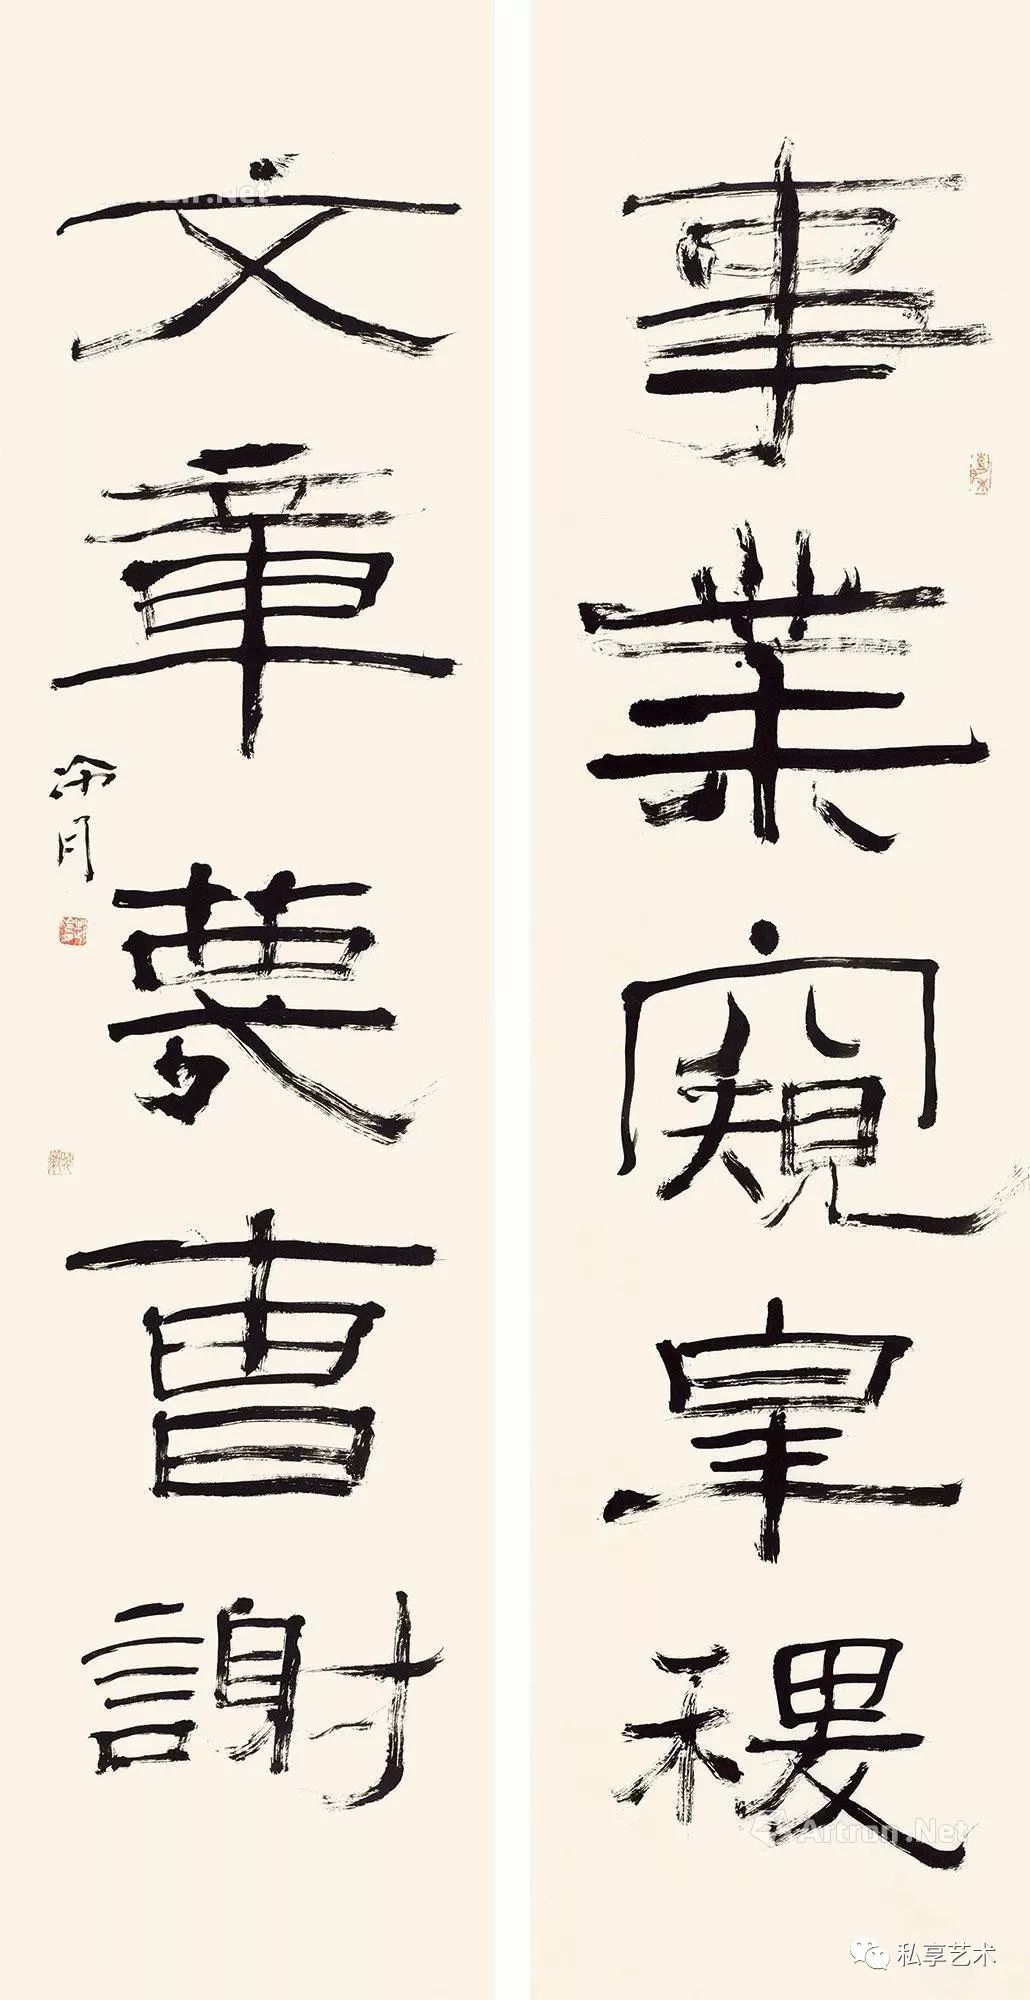 事業窺皋稷
文章蔑曹謝
Artron.Net
Artron.Net
私享艺术